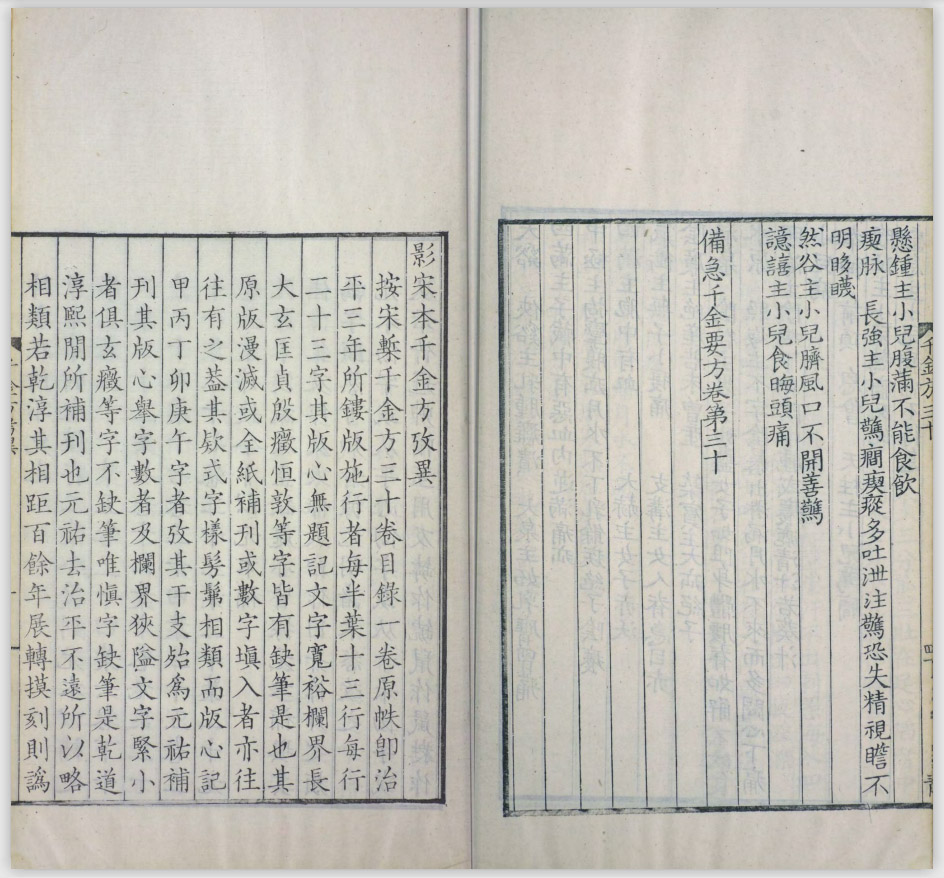 懸鍾主小兒腹滿不能食飲
瘈脉 長強主小兒驚癇瘈瘲多吐泄注驚恐失精視瞻不
明眵䁾
然谷主小兒臍風口不開善驚
譩譆主小兒食晦頭痛
備急千金要方卷第三十
千金方三十
影宋本千金方攷異
按宋槧千金方三十卷目錄一卷原帙卽治
平三年所鏤版施行者每半葉十三行每行
二十三字其版心無題記文字寬裕欄界長
大玄匡貞殷癥恒敦等字皆有缺筆是也其
原版漫滅或全紙補刊或數字塡入者亦往
往有之葢其欵式字樣髣髴相類而版心記
甲丙丁卯庚午字者攷其干支殆爲元祐補
刊其版心舉字數者及欄界狹隘文字緊小
者俱玄癥等字不缺筆唯愼字缺筆是乾道
淳熙閒所補刊也元祐去治平不遠所以略
相類若乾淳其相距百餘年展轉摸刻則譌